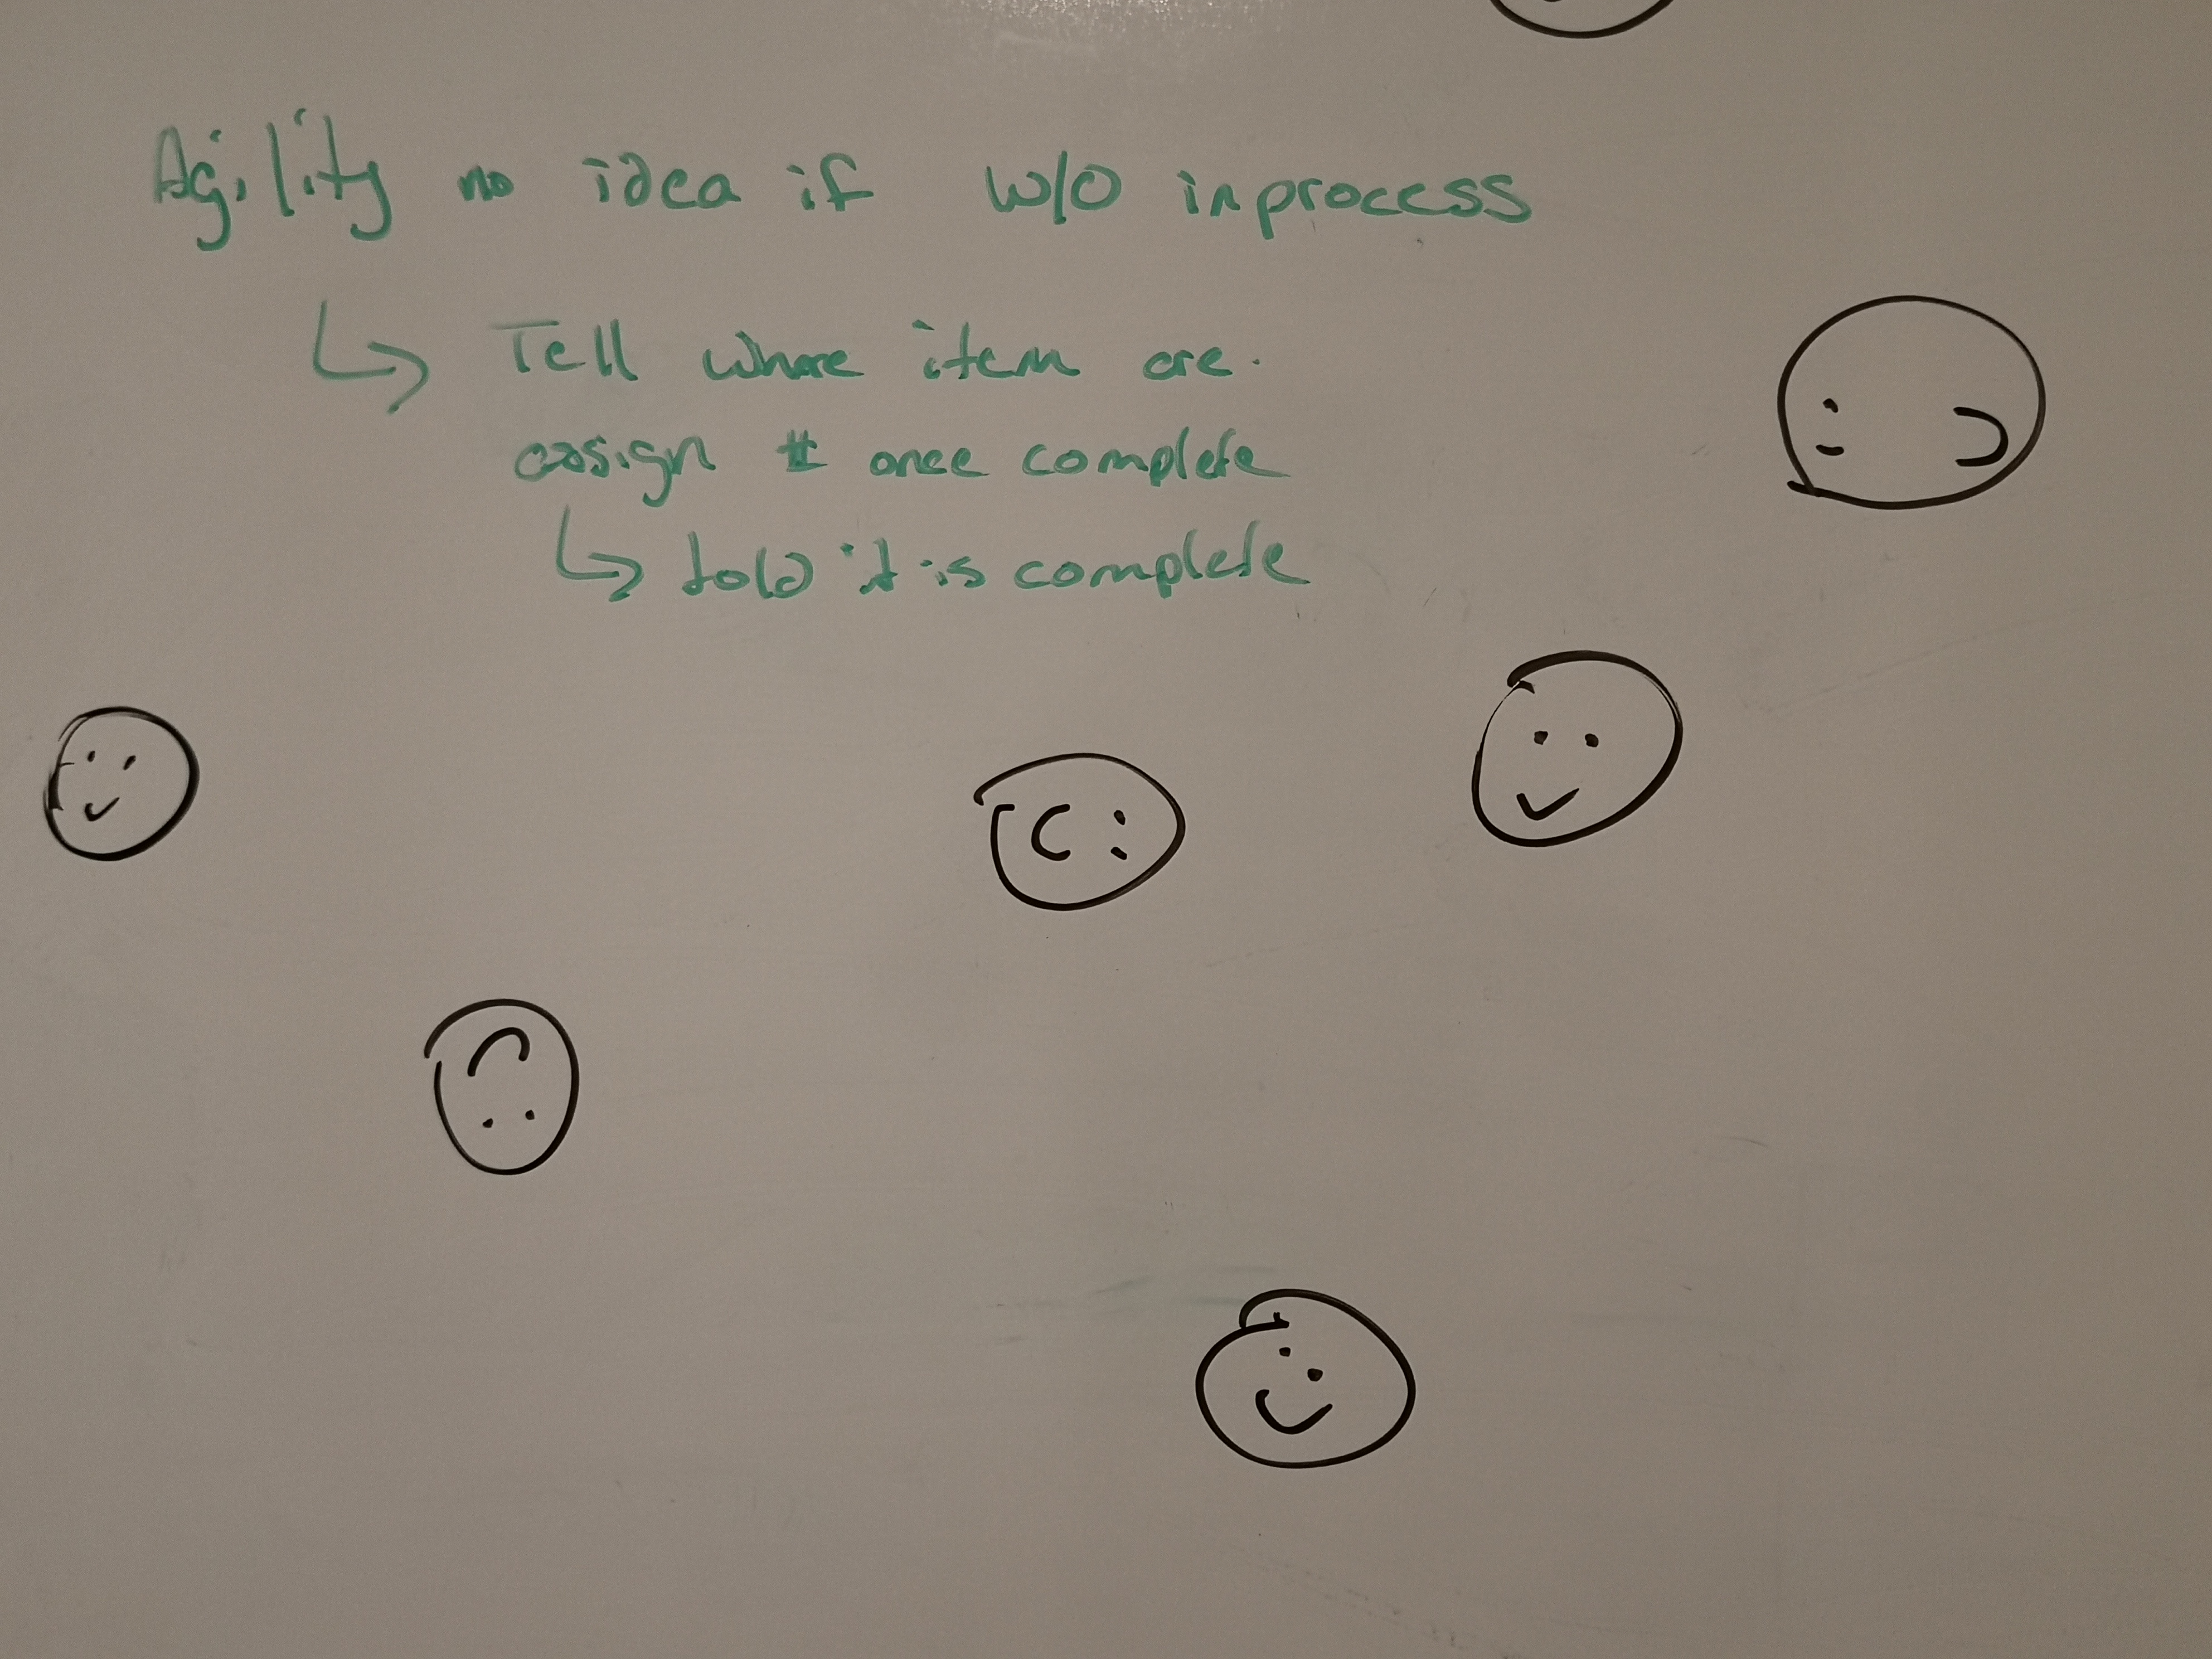 Agility no idea if w/o inprocess
↳ Tell where item are.
assign # once complete
↳ told it is complete